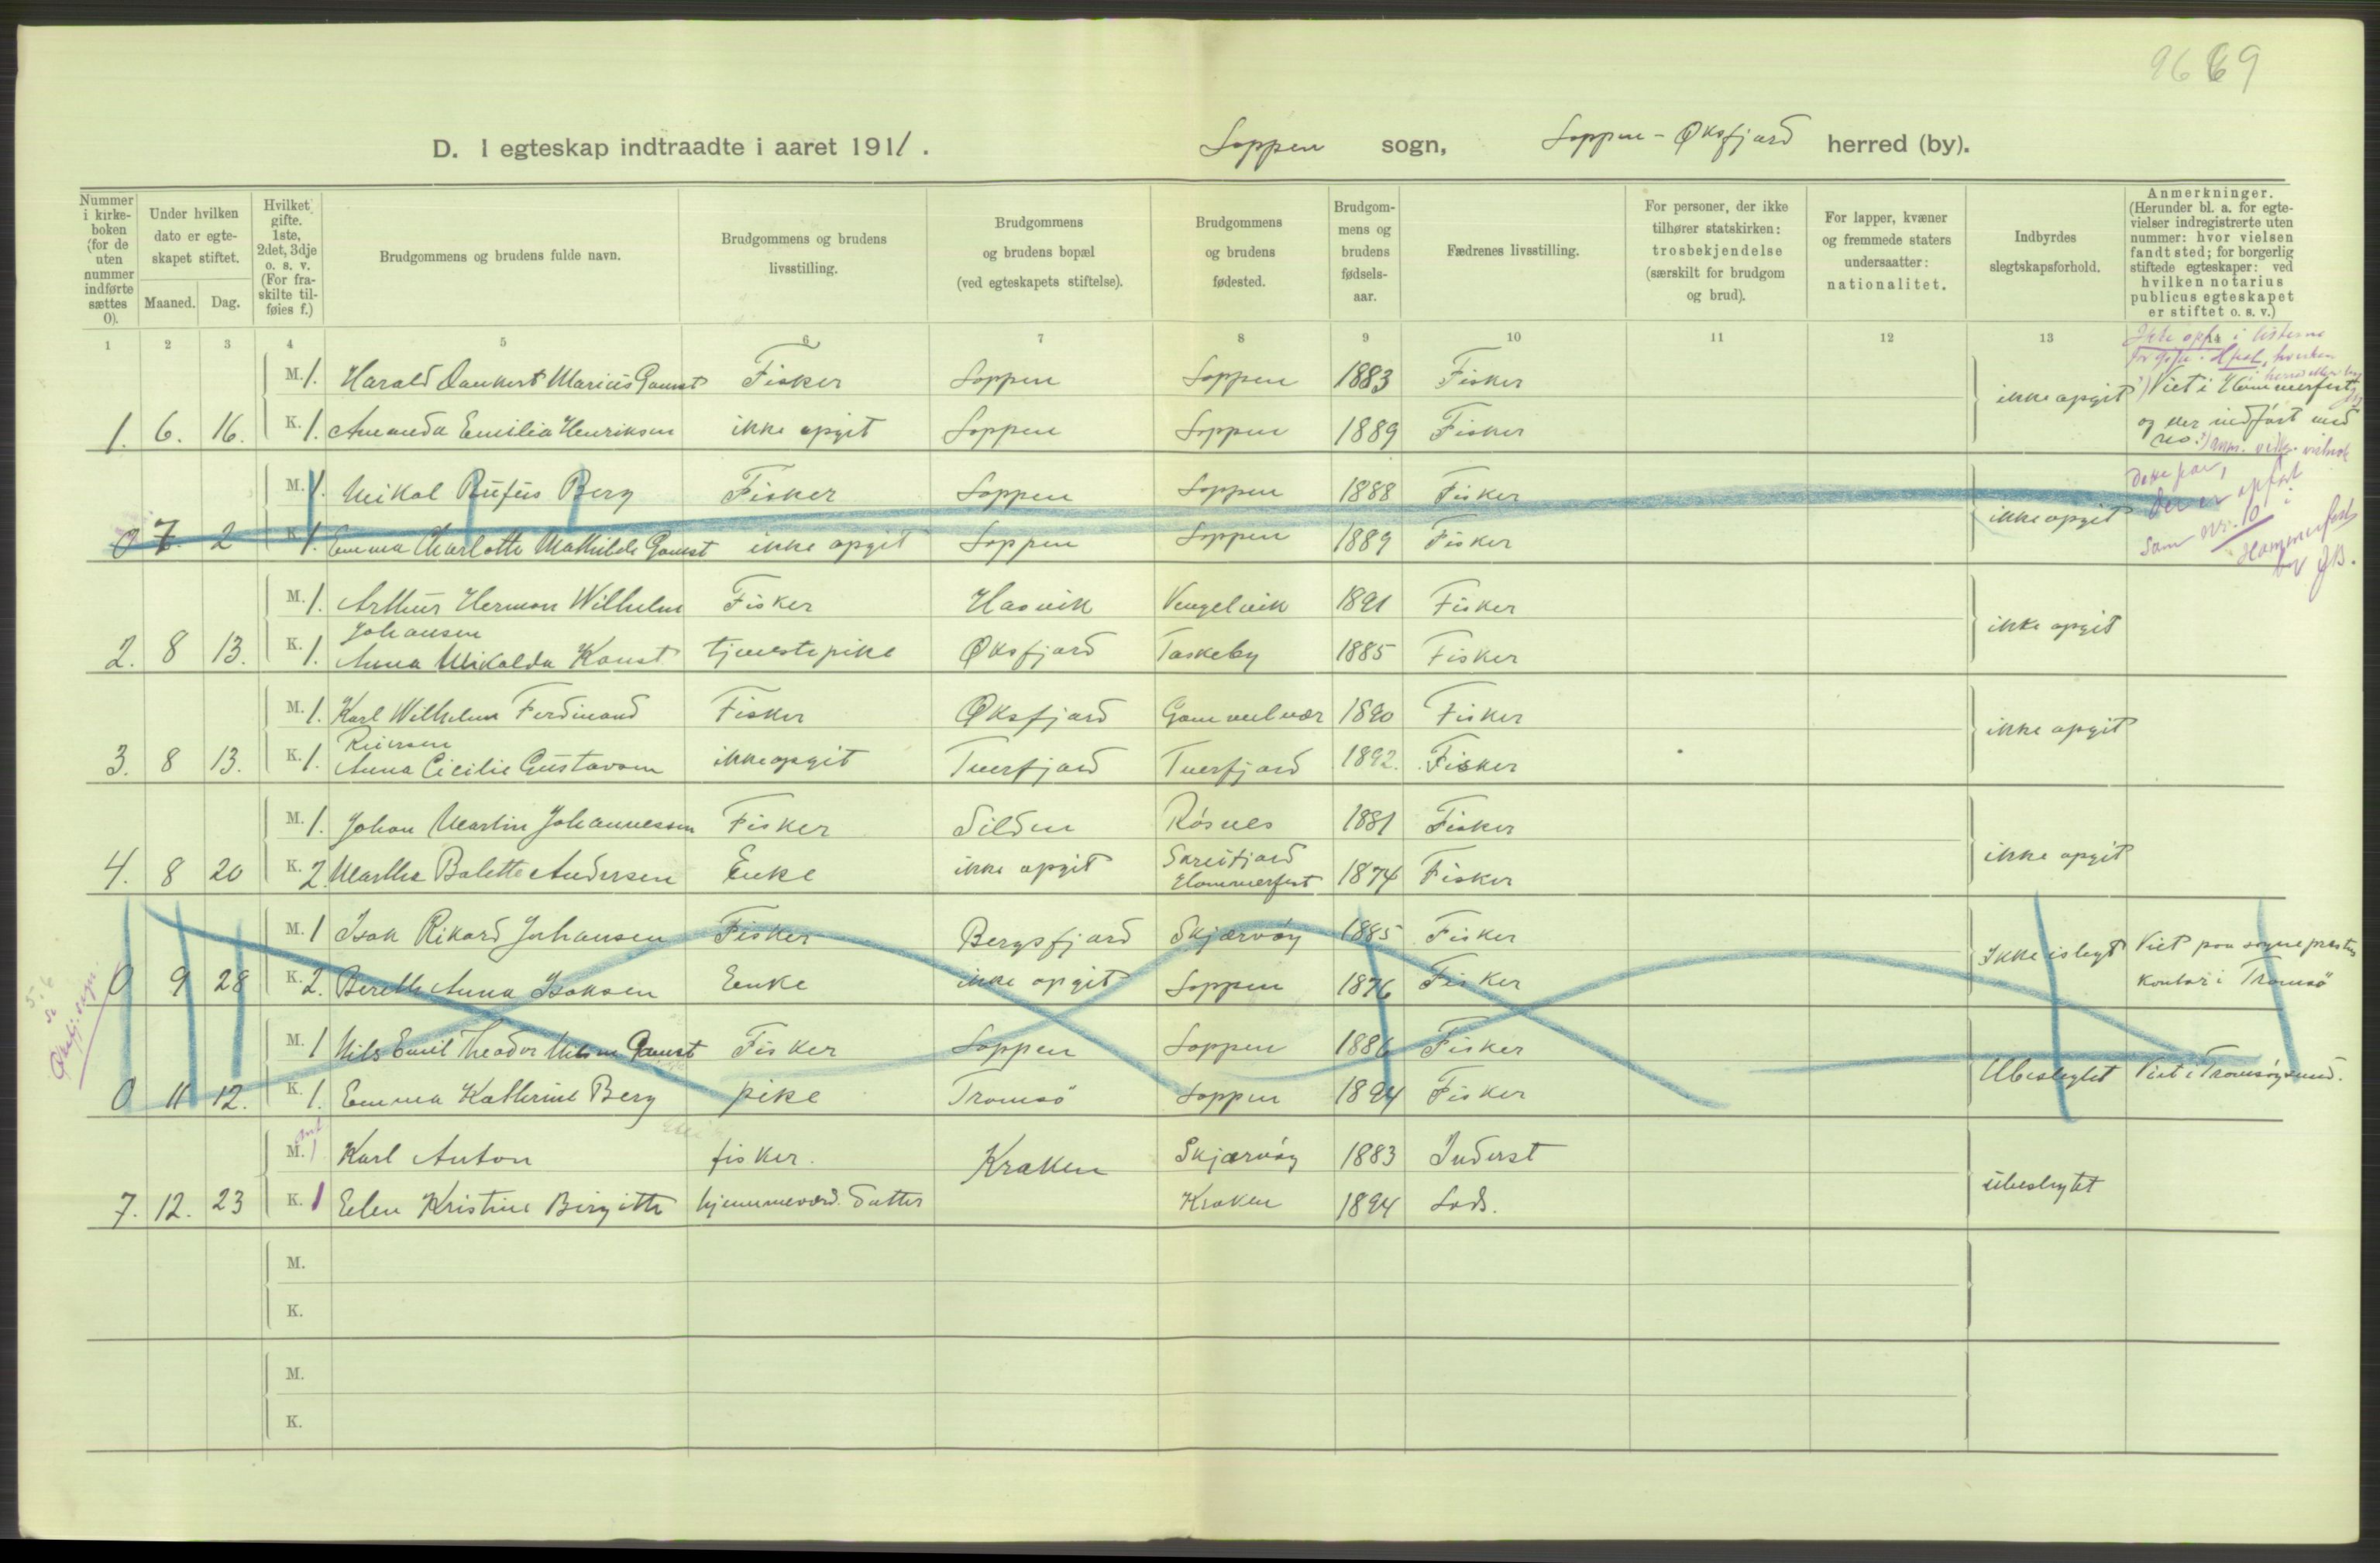 9669
D. I egteskap indtraadte i aaret 1911. Loppen sogn, Loppen - Øksfjord herred (by).
Nummer i kirke-boken (for de uten nummer indførte sættes 0).
Under hvilken dato er egte-skapet stiftet.
Maaned. Dag.
Hvilket gifte. 1ste, 2det, 3dje o. s. v. (For fra-skilte til-føies f.)
Brudgommens og brudens fulde navn.
Brudgommens og brudens livsstilling.
Brudgommens og brudens bopæl (ved egteskapets stiftelse).
Brudgommens og brudens fødested.
Brudgom-mens og brudens fødsels-aar.
Fædrenes livsstilling.
For personer, der ikke tilhører statskirken: trosbekjendelse (særskilt for brudgom og brud).
For lapper, kvæner og fremmede staters undersaatter: nationalitet.
Indbyrdes slegtskapsforhold.
Anmerkninger. (Herunder bl. a. for egte-vielser indregistrerte uten nummer: hvor vielsen fandt sted; for borgerlig stiftede egteskaper: ved hvilken notarius publicus egteskapet er stiftet o. s. v.)
1 2 3 4 5 6 7 8 9 10 11 12 13
M. 1. Harald Dankert Marius Gamst Fisker Loppen Loppen 1883 Fisker
1. 6. 16. K. 1. Amanda Emilia Henriksen ikke opgit Loppen Loppen 1889 Fisker ikke opgit Viet i Hammerfest og der indført med no.
M. 1. Mikal Rufus Berg Fisker Loppen Loppen 1888 Fisker
0 7. 2 K. 1. Emma Charlotte Mathilde Gamst ikke opgit Loppen Loppen 1889 Fisker ikke opgit
Dette par, der er opført som nr. 10 i Hammerfest
M. 1. Arthur Herman Wilhelm Fisker Hasvik Vengelvik 1891 Fisker
Johansen
2. 8 13. K. 1. Anna Mikalda Kaust tjenestepike Øksfjord Taskeby 1885 Fisker ikke opgit
M. 1. Karl Wilhelm Ferdinand Fisker Øksfjord Gammelvær 1890 Fisker
Reiersen
3. 8 13. K. 1. Anna Cicilie Gustavsen ikke opgit Tverfjord Tverfjord 1892. Fisker ikke opgit
M. 1. Johan Martin Johannessen Fisker Silden Rösnes 1881 Fisker
4. 8 20 K. 2. Marthe Bolette Andersen Enke ikke opgit Hammerfest 1874 Fisker ikke opgit
M. 1 Isak Rikard Johansen Fisker Bergsfjord Skjærvöy 1885 Fisker
0 9 28 K. 2. Berethe Anna Isaksen Enke ikke opgit Loppen 1876 Fisker Ikke i slegt Viet paa sogneprestens kontor i Tromsö
M. 1 Nils Emil Theodor Nilsen Gamst Fisker Loppen Loppen 1886 Fisker
0 11 12. K. 1. Emma Kathrine Berg pike Tromsö Loppen 1894 Fisker Ubeslegtet Viet i Tromsöysund.
M. 1 Karl Anton fisker. Kraken Skjærvöy 1883 Inderst
7. 12. 23 K. 1 Elen Kristine Birgitte hjemmevær. datter Kraken 1894 Lods. ubeslegtet
M.
K.
M.
K.